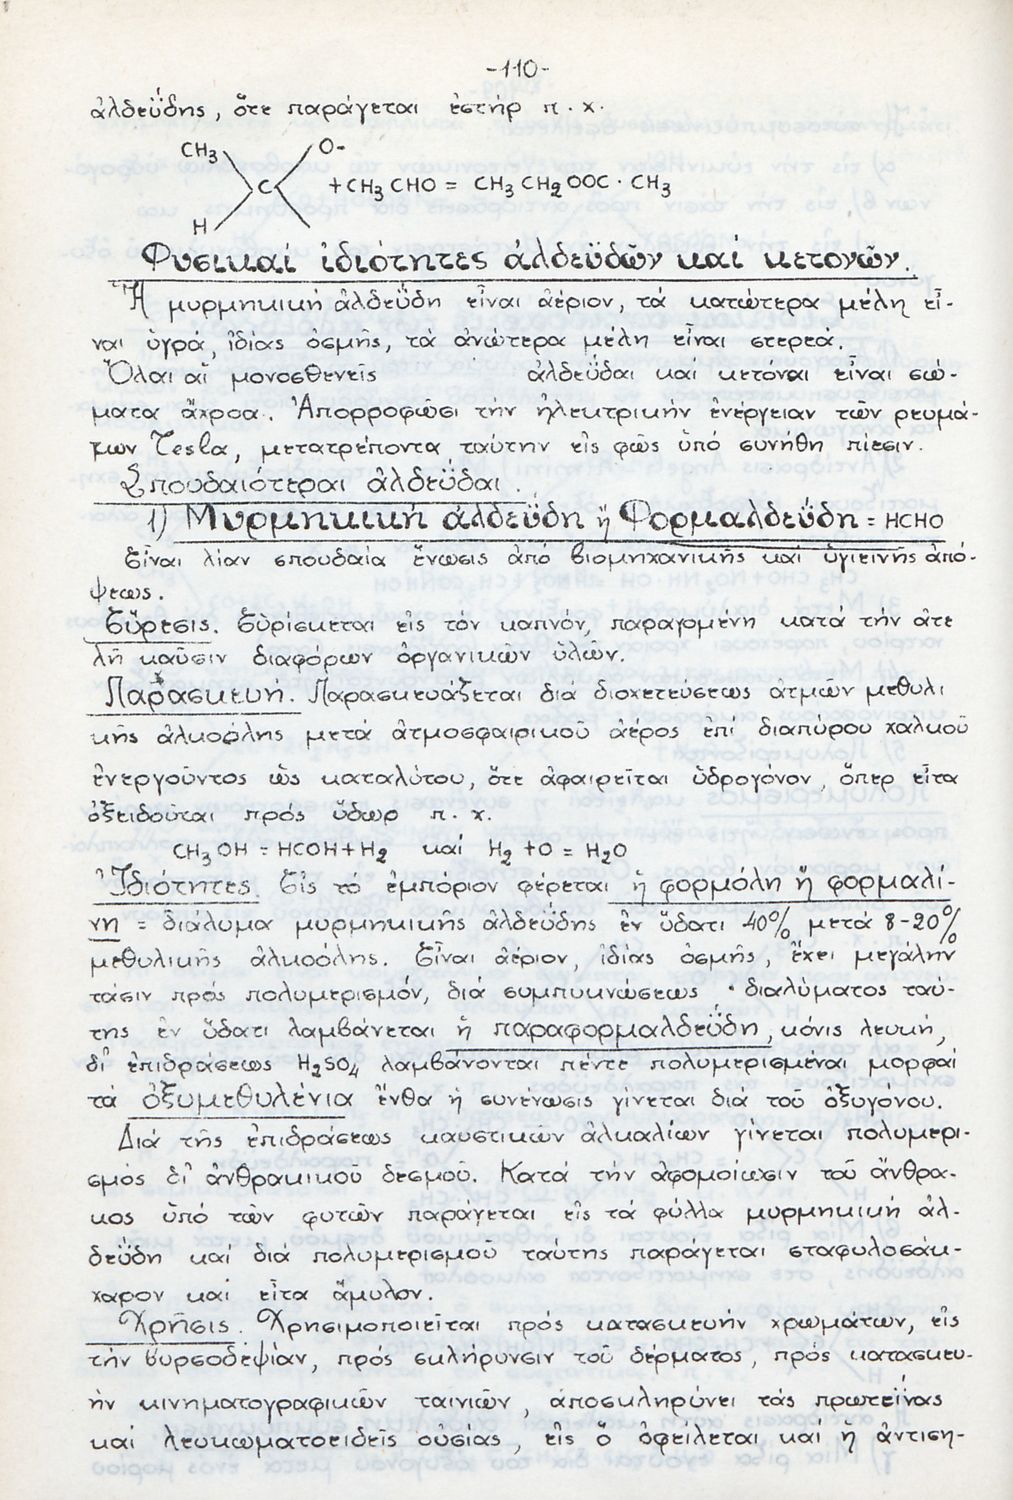 -110-
ἀλδεΰδης, ὅτε παράγεται ἐστήρ π.χ.
CH3 O-
C +CH3 CHO = CH3 CH2 OOC · CH3
H
Φυσικαί ἰδιότητες ἀλδεϋδῶν καί κετονῶν.
Ἡ μυρμηκική ἀλδεΰδη εἶναι ἀέριον, τά κατώτερα μέλη εἶ-
ναι ὑγρά, ἰδίας ὀσμῆς, τά ἀνώτερα μέλη εἶναι στερεά.
Ὅλαι αἱ μονοσθενεῖς ἀλδεΰδαι καί κετοναι εἶναι σώ-
ματα ἄχροα. Ἀπορροφῶσι τήν ἠλεκτρικήν ἐνέργειαν τῶν ρευμά-
των Tesla, μετατρέποντα ταύτην εἰς φῶς ὑπό συνήθη πίεσιν.
Σπουδαιότεραι ἀλδεΰδαι.
1) Μυρμηκική ἀλδεΰδη ἤ Φορμαλδεΰδη = HCHO
Εἶναι λίαν σπουδαία ἕνωσις ἀπό βιομηχανικῆς καί ὑγιεινῆς ἀπό-
ψεως.
Εὕρεσις. Εὑρίσκεται εἰς τόν καπνόν, παραγομένη κατά τήν ἀτε
λῆ καῦσιν διαφόρων ὀργανικῶν ὑλῶν.
Παρασκευή. Παρασκευάζεται διά διοχετεύσεως ἀτμῶν μεθυλι
κῆς ἀλκοόλης μετά ἀτμοσφαιρικοῦ ἀέρος ἐπί διαπύρου χαλκοῦ
ἐνεργοῦντος ὡς καταλύτου, ὅτε ἀφαιρεῖται ὑδρογόνον, ὅπερ εἶτα
ὀξειδοῦται πρός ὕδωρ π.χ.
CH3 OH = HCOH + H2 καί H2 + O = H2O
Ἰδιότητες. Εἰς τό ἐμπόριον φέρεται ἡ φορμόλη ἤ φορμαλί-
νη = διάλυμα μυρμηκικῆς ἀλδεΰδης ἐν ὕδατι 40% μετά 8-20%
μεθυλικῆς ἀλκοόλης. Εἶναι ἀέριον, ἰδίας ὀσμῆς, ἔχει μεγάλην
τάσιν πρός πολυμερισμόν, διά συμπυκνώσεως · διαλύματος ταύ-
της ἐν ὕδατι λαμβάνεται ἡ παραφορμαλδεΰδη, κόνις λευκή,
δι' ἐπιδράσεως H2SO4 λαμβάνονται πέντε πολυμερισμέναι μορφαί
τά ὀξυμεθυλένια ἔνθα ἡ συνένωσις γίνεται διά τοῦ ὀξυγόνου.
Διά τῆς ἐπιδράσεως καυστικῶν ἀλκαλίων γίνεται πολυμερι-
σμός δι' ἀνθρακικοῦ δεσμοῦ. Κατά τήν ἀφομοίωσιν τοῦ ἄνθρα-
κος ὑπό τῶν φυτῶν παράγεται εἰς τά φύλλα μυρμηκική ἀλ-
δεΰδη καί διά πολυμερισμοῦ ταύτης παράγεται σταφυλοσάκ-
χαρον καί εἶτα ἄμυλον.
Χρῆσις. Χρησιμοποιεῖται πρός κατασκευήν χρωμάτων, εἰς
τήν βυρσοδεψίαν, πρός σκλήρυνσιν τοῦ δέρματος, πρός κατασκευ-
ήν κινηματογραφικῶν ταινιῶν, ἀποσκληρύνει τάς πρωτεΐνας
καί λευκωματοειδεῖς οὐσίας, εἰς ὅ ὀφείλεται καί ἡ ἀντιση-